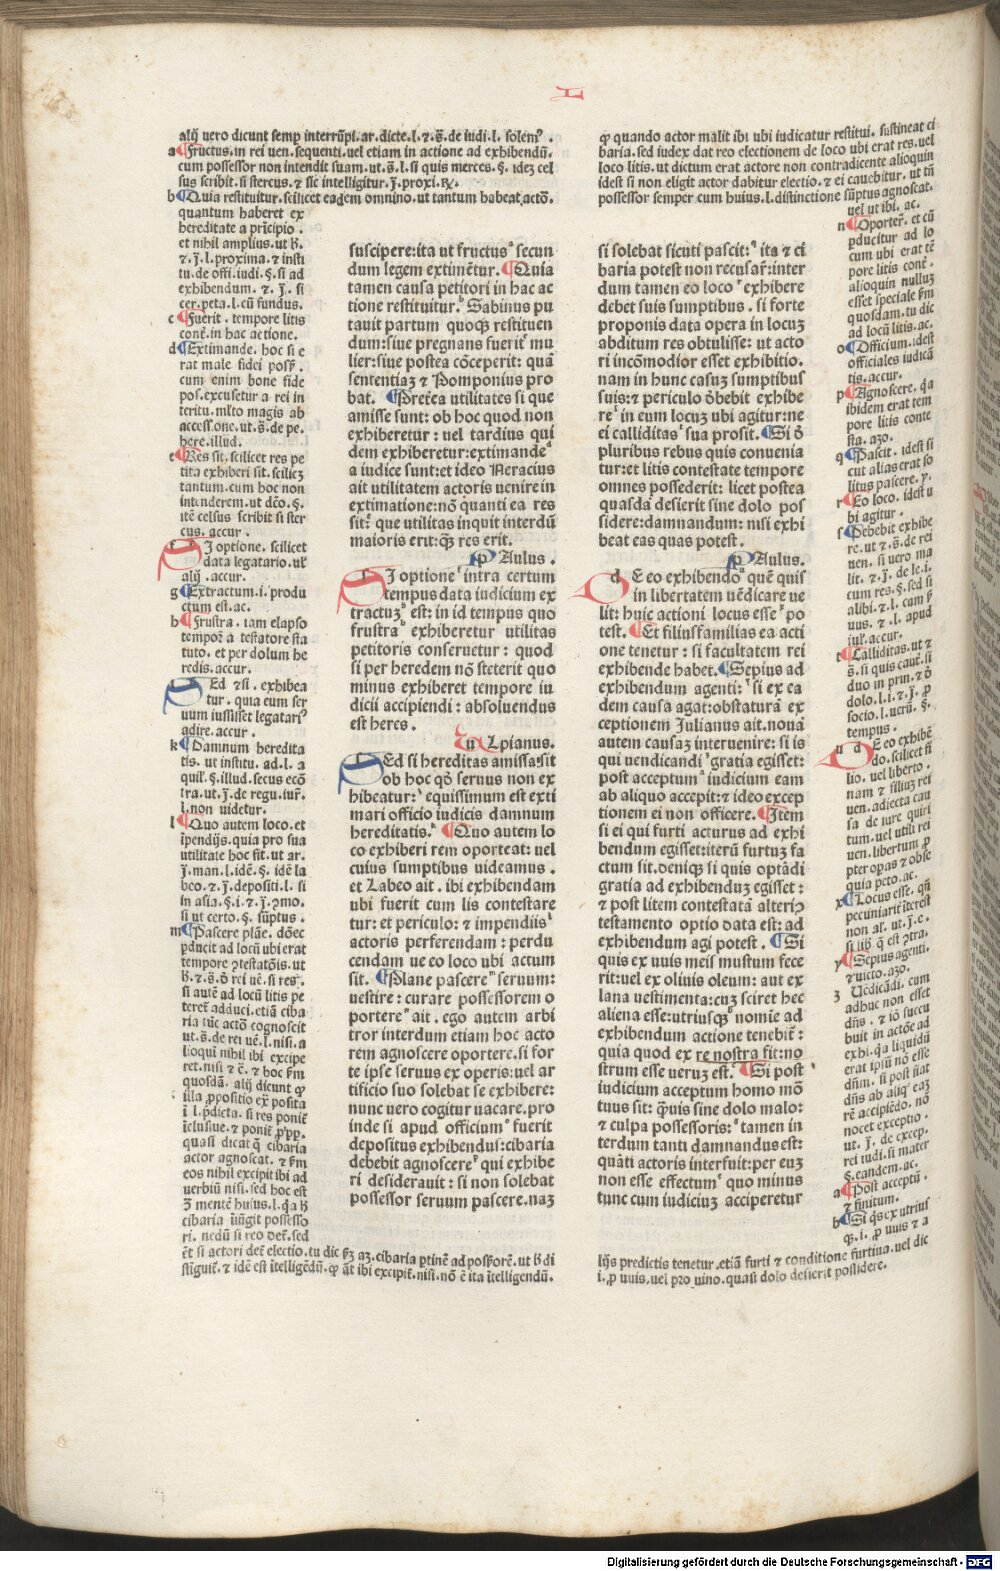 L
alij vero dicunt semp interrũpi. ar. dicte. l. ⁊. s̄. de iudi. l. solemꝰ.
a ¶Fructus. in rei uen. sequenti. uel etiam in actione ad exhibendũ.
cum possessor non intendit suam. ut. s̄. l. si quis merces. §. idez cel
sus scribit. si stercus. ⁊ sic intelligitur. j̄. proxi. R̓.
b ¶Quia restituitur. scilicet eadem omnino. ut tantum habeat actõ.
quantum haberet ex
hereditate a pricipio.
et nihil amplius. ut h̄.
⁊. j̄. l. proxima. ⁊ insti
tu. de offi. iudi. §. si ad
exhibendum. ⁊. j̄. si
cer. peta. l. cũ fundus.
c ¶Fuerit. tempore litis
cont̄. in hac actione.
d ¶Extimande. hoc si e
rat male fidei posſ.
cum enim bone fide
pos. excusetur a rei in
teritu. ml̓to magis ab
accessione. ut. s̄. de pe.
here. illud.
e ¶Res sit. scilicet res pe
tita exhiberi sit. scilicz
tantum. cum hoc non
intenderem. ut dc̄o. §.
itẽ celsus scribit si ster
cus. accur.
f SI optione. scilicet
data legatario. ul̓
alij. accur.
g ¶Extractum. i. produ
ctum est. ac.
h ¶Frustra. iam elapso
temporē a testatore sta
tuto. et per dolum he
redis. accur.
i SEd ⁊ si. exhibea
tur. quia eum ser
uum iussisset legatariꝰ
adire. accur.
k ¶Damnum heredita
tis. ut institu. ad. l. a
quil. §. illud. secus ecõ
tra. ut. j̄. de regu. iur̄.
l. non uidetur.
l ¶Quo autem loco. et
ĩpendijs. quia pro sua
utilitate hoc fit. ut ar.
j̄. man. l. idē. §. idē la
beo. ⁊. j̄. depositi. l. si
in asia. §. i. ⁊. j̄. ↄmo.
si ut certo. §. sũptus.
m ¶Pascere plãe. dõec
ꝑducit ad locũ ubi erat
tempore ↄtestatõis. ut
h̄. ⁊. s̄. ð rei uē. si res.
si autē ad locũ litis pe
teret̄ adduci. etiã ciba
ria tũc actõ cognoscit
ut. s̄. de rei uē. l. nisi. a
lioqui nihil ibi excipe
ret. nisi ⁊ c̄. ⁊ hoc ꝑm
quosdã. alij dicunt ꝙ
illa ꝓpositio ex posita
ĩ l. ꝑdicta. si res ponit̄
ĩclusiue. ⁊ ponit̄ ꝓpꝑ.
quasi dicat ꝙ cibaria
actor agnoscat. ⁊ ꝑm
eos nihil excipit ibi ad
uerbiũ nisi. sed hoc est
ʒ mentē huius. l. q̃a h̄
cibaria ũigit possesso
ri. nedũ si reo det̄. sed
et̄ si actori det̄ electio. tu dic ꝑʒ aʒ. cibaria ꝑtinē ad possorē. ut h̄ di
stiguit̄. ⁊ idē est ĩtelligēdũ. ꝙ āt̄ ibi excipit̄. nisi. nõ ē ita ĩtelligendũ.
suscipere: ita ut fructusᵃ secun
dum legem extimẽtur. ¶Quia
tamen causa petitori in hac ac
tione restituitur.ᵇ Sabinus pu
tauit partum quoqꝫ restituen
dum: siue pregnans fueritᶜ mu
lier: siue postea cõceperit: quã
sententiaʒ ⁊ Pomponius pro
bat. ¶Pret̄ea utilitates si que
amisse sunt: ob hoc quod non
exhiberetur: uel tardius qui
dem exhiberetur: extimandeᵈ
a iudice sunt: et ideo Neracius
ait utilitatem actoris uenire in
extimatione: nõ quanti ea res
sit:ᵉ que utilitas inquit interdũ
maioris erit: qʒ res erit.
pAulus.
SI optioneᶠ intra certum
tempus data iudicium ex
tractuʒᵍ est: in id tempus quo
frustraʰ exhiberetur utilitas
petitoris conseruetur: quod
si per heredem nõ steterit quo
minus exhiberet tempore iu
dicii accipiendi: absoluendus
est heres.
uLpianus.
SEd si hereditas amissaⁱ sit
ob hoc qõ seruus non ex
hibeatur: equissimum est exti
mari officio iudicis damnum
hereditatis.ᵏ ¶Quo autem lo
co exhiberi rem oporteat: uel
cuius sumptibus uideamus.
et Labeo ait. ibi exhibendam
ubi fuerit cum lis contestare
tur: et periculo: ⁊ impendiisˡ
actoris perferendam: perdu
cendam ue eo loco ubi actum
sit. ¶Plane pascereᵐ seruum:
uestire: curare possessorem o
portereⁿ ait. ego autem arbi
tror interdum etiam hoc acto
rem agnoscere oportere. si for
te ipse seruus ex operis: uel ar
tificio suo solebat se exhibere:
nunc uero cogitur uacare. pro
inde si apud officiumᵒ fuerit
depositus exhibendui: cibaria
debebit agnoscereᵖ qui exhibe
ri desiderauit: si non solebat
possessor seruum pascere. naʒ
ꝙ quando actor malit ibi ubi iudicatur restitui. sustineat ci
baria. sed iudex dat reo electionem de loco ubi erat res. uel
loco litis. ut dictum erat actore non contradicente alioquin
idest si non eligit actor dabitur electio. ⁊ ei cauebitur. ut tñ
possessor semper cum huius. l. distinctione sũptus agnoscat.
si solebat sicuti pascit: ita ⁊ ci
baria potest non recusar̄: inter
dum tamen eo locoʳ exhibere
debet suis sumptibus. si forte
proponis data opera in locuʒ
abditum res obtulisse: ut acto
ri incõmodior esset exhibitio.
nam in hunc casuʒ sumptibus
suis: ⁊ periculo ðbebit exhibe
reˢ in eum locuʒ ubi agitur: ne
ei calliditasᵗ sua prosit. ¶Si ð
pluribus rebus quis conuenia
tur: et litis contestate tempore
omnes possederit: licet postea
quasdã desierit sine dolo pos
sidere: damnandum: nisi exhi
beat eas quas potest.
pAulus.
DE eo exhibendoᵘ quē quis
in libertatem uēdicare ue
lit: huic actioni locus esseˣ po
test. ¶Et filiusfamilias ea acti
one tenetur: si facultatem rei
exhibende habet. ¶Sepius ad
exhibendum agenti: si ex ea
dem causa agat: obstaturã ex
ceptionem Julianus ait. nouã
autem causaʒ interuenire: si is
qui uendicandi gratia egisset:
post acceptum iudicium eam
ab aliquo accepit: ⁊ ideo excep
tionem ei non officere. ¶Item
si ei qui furti acturus ad exhi
bendum egisset: iterũ furtuʒ fa
ctum sit. deniqꝫ si quis optãdi
gratia ad exhibenduʒ egisset:
⁊ post litem contestatã alteriꝰ
testamento optio data est: ad
exhibendum agi potest. ¶Si
quis ex uuis meis mustum fece
rit: uel ex oliuis oleum: aut ex
lana uestimenta: cuʒ sciret hec
aliena esse: utriusqꝫ nomĩe ad
exhibendum actione tenebit̄:
quia quod ex re nostra fit: no
strum esse ueruʒ est. ¶Si post
iudicium acceptum homo mõ
tuus sit: q̃uis sine dolo malo:
⁊ culpa possessoris: tamen in
terdum tanti damnandus est:
quãti actoris interfuit: per euʒ
non esse effectum quo minus
tunc cum iudiciuʒ acciperetur
uel ut ibi. ac.
n ¶Oporter̄. et cũ
ꝑducitur ad lo
cum ubi erat tē
pore litis cont̄.
alioquin nullum
esset speciale ꝑm
quosdam. tu dic
ad locũ litis. ac.
o ¶Officium. idest
officiales iudicã
tis. accur.
p ¶Agnoscere. q̃a
ibidem erat tem
pore litis conte
sta. aʒo.
q ¶Pascit. idest si
cut alias erat so
litus pascere. y.
r ¶Eo loco. idest u
bi agitur.
s ¶Debebit exhibe
re. ut ⁊. s̄. de rei
uen. si uero ma
lit. ⁊. j̄. de le. i.
cum res. §. sed si
alibi. ⁊. l. cam ꝑ
uen. ⁊. l. apud
iul̓. accur.
t ¶Calliditas. ut ⁊
s̄. si quis caut̄. si
duo in prin. ⁊ ð
dolo. l. i. ⁊. j̄. ꝓ
socio. l. ucrũ. §.
tempus.
u DE eo exhibē
do. scilicet fi
lio. uel liberto.
nam ⁊ filiuʒ rei
uen. adiecta cau
sa de iure quiri
tum. uel utili rei
uen. libertum ꝓ
pter opas ⁊ obse
quia peto. ac.
x ¶Locus esse. qñ
pecuniarit̄ ĩterest
non al̓. ut. j̄. e.
si lib̄ ꝙ est ↄtra.
y ¶Sepius agenti.
⁊ uicto. aʒo.
z Uēdicãdi. cum
adhuc non esset
dñs. ⁊ iõ succu
buit in actõe ad
exhi. q̃a liquidũ
erat ip̄iũ nõ esse
dñm. si post fiat
dñs ab aliq̃ eaʒ
rē accipiēdo. nõ
nocet exceptio.
ut. j̄. de excep.
rei iudi. si mater
§. eandem. ac.
a ¶Post acceptũ.
⁊ finitum.
b ¶Si q̃s ex utrius
ꝙ. i. ꝓ uuis ⁊ a
lijs predictis tenetur. etiã furti ⁊ conditione furtiua. uel dic
i. ꝓ uuis. uel pro uino. quasi dolo desierit possidere.
Digitalisierung gefördert durch die Deutsche Forschungsgemeinschaft - DFG